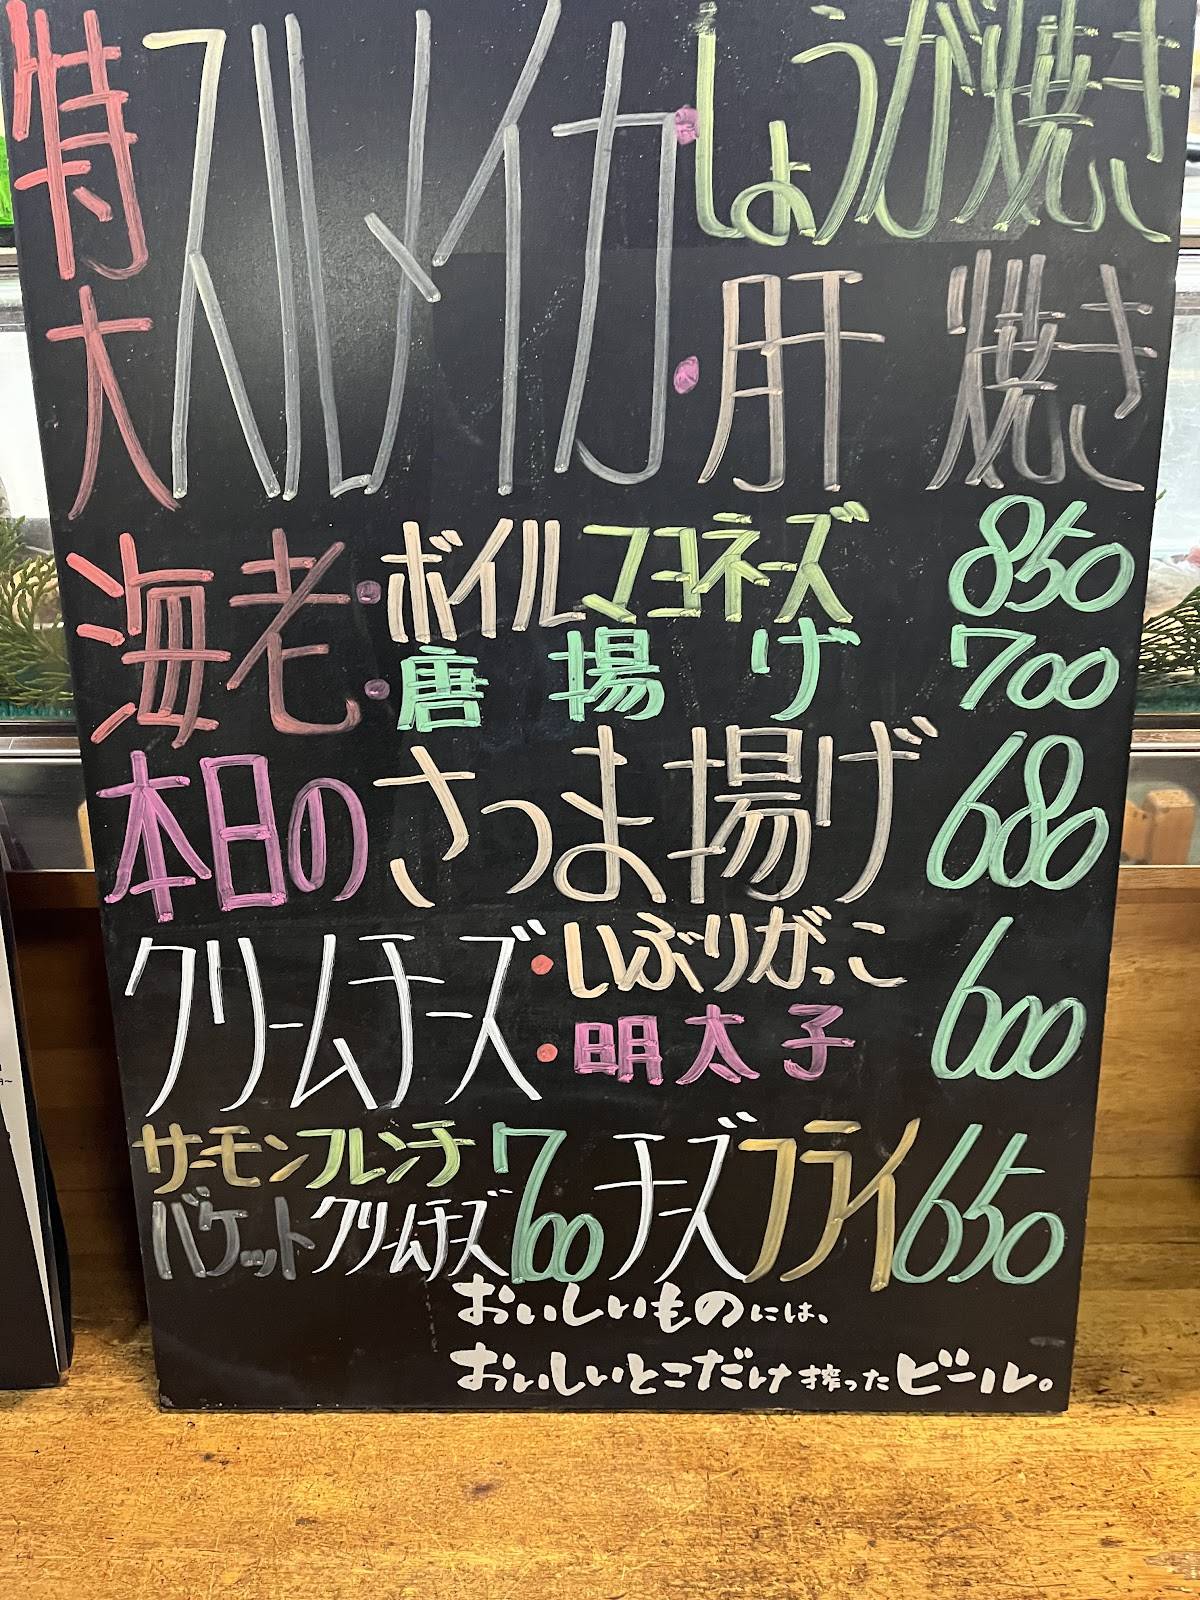 特大スルメイカ・しょうが焼き
・肝焼き
海老・ボイルマヨネーズ 850
・唐揚げ 700
本日のさつま揚げ 680
クリームチーズ・いぶりがっこ 600
・明太子
サーモンフレンチ 700 チーズフライ 650
バケットクリームチーズ
おいしいものには、
おいしいとこだけ搾ったビール。